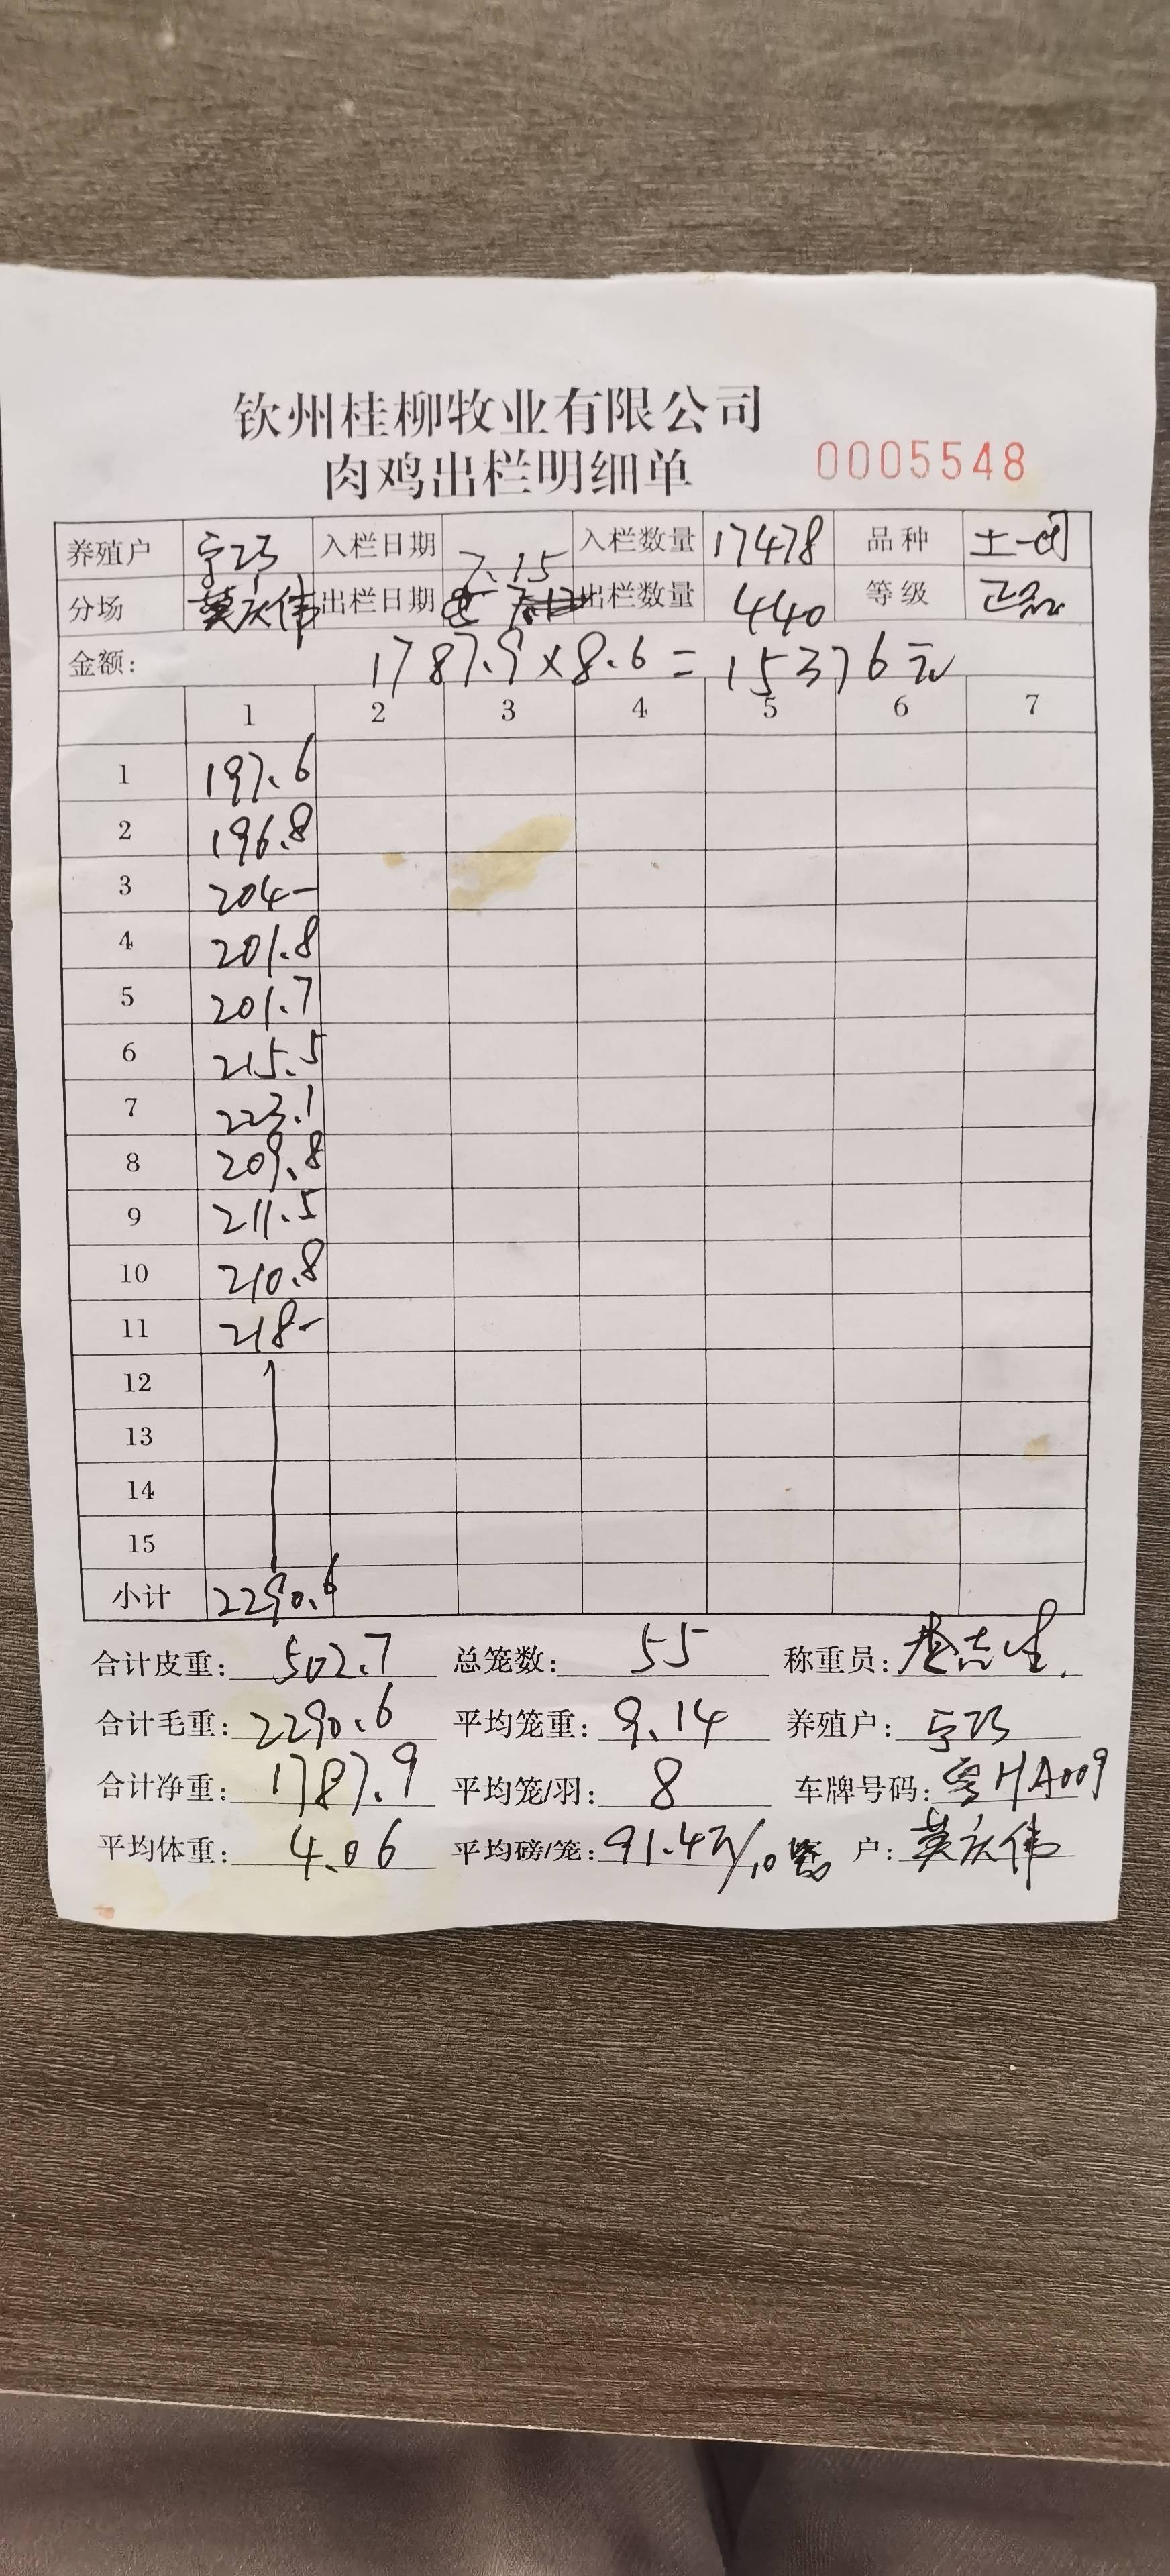 钦州桂柳牧业有限公司
肉鸡出栏明细单 0005548
养殖户 入栏日期 7.15 入栏数量 17478 品种
分场 莫庆伟 出栏日期 出栏数量 440 等级 正品
金额: 1787.9×8.6=15376元
1 2 3 4 5 6 7
1 197.6
2 196.8
3 204-
4 201.8
5 201.7
6 215.5
7 223.1
8 209.8
9 211.5
10 210.8
11 218-
12
13
14
15
小计 2290.6
合计皮重: 502.7 总笼数: 55 称重员:
合计毛重: 2290.6 平均笼重: 9.14 养殖户:
合计净重: 1787.9 平均笼/羽: 8 车牌号码: 粤HA009
平均体重: 4.06 平均磅/笼: 91.4 户: 莫庆伟